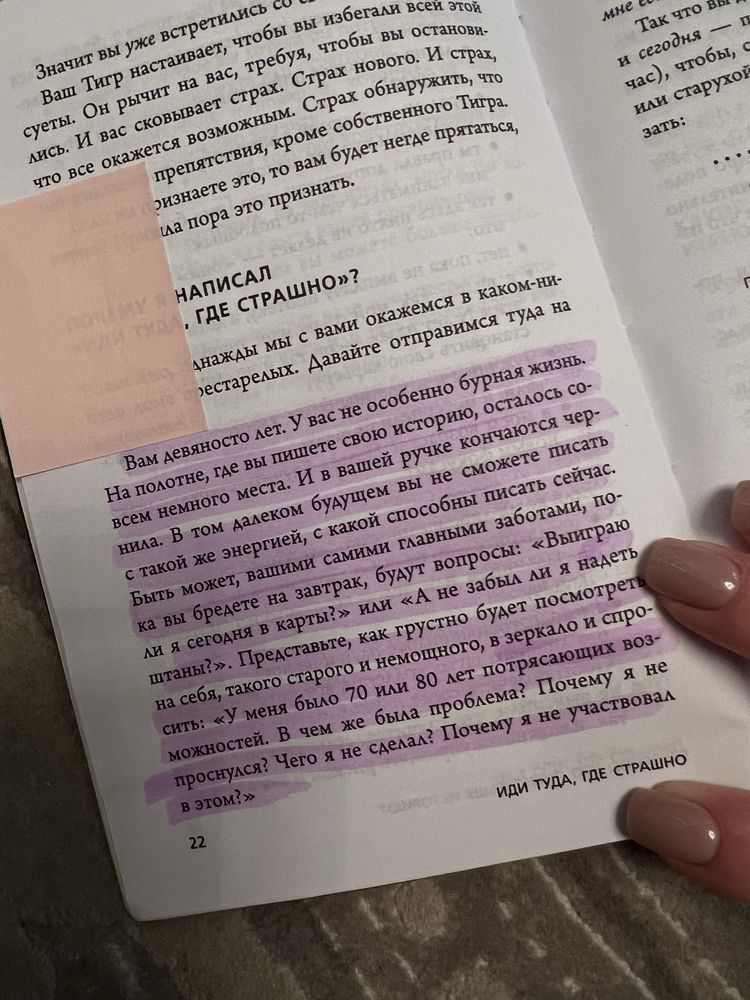 Значит вы уже встретились со
Ваш Тигр настаивает, чтобы вы избегали всей этой
суеты. Он рычит на вас, требуя, чтобы вы останови-
лись. И вас сковывает страх. Страх нового. И страх,
что все окажется возможным. Страх обнаружить, что
препятствия, кроме собственного Тигра.
ризнаете это, то вам будет негде прятаться,
ла пора это признать.
НАПИСАЛ
, ГДЕ СТРАШНО»?
днажды мы с вами окажемся в каком-ни-
рестарелых. Давайте отправимся туда на
Вам девяносто лет. У вас не особенно бурная жизнь.
На полотне, где вы пишете свою историю, осталось со-
всем немного места. И в вашей ручке кончаются чер-
нила. В том далеком будущем вы не сможете писать
с такой же энергией, с какой способны писать сейчас.
Быть может, вашими самими главными заботами, по-
ка вы бредете на завтрак, будут вопросы: «Выиграю
ли я сегодня в карты?» или «А не забыл ли я надеть
штаны?». Представьте, как грустно будет посмотреть
на себя, такого старого и немощного, в зеркало и спро-
сить: «У меня было 70 или 80 лет потрясающих воз-
можностей. В чем же была проблема? Почему я не
проснулся? Чего я не сделал? Почему я не участвовал
в этом?»
ИДИ ТУДА, ГДЕ СТРАШНО
22
мне
Так что вы
и сегодня —
час), чтобы,
или старухой
зать: